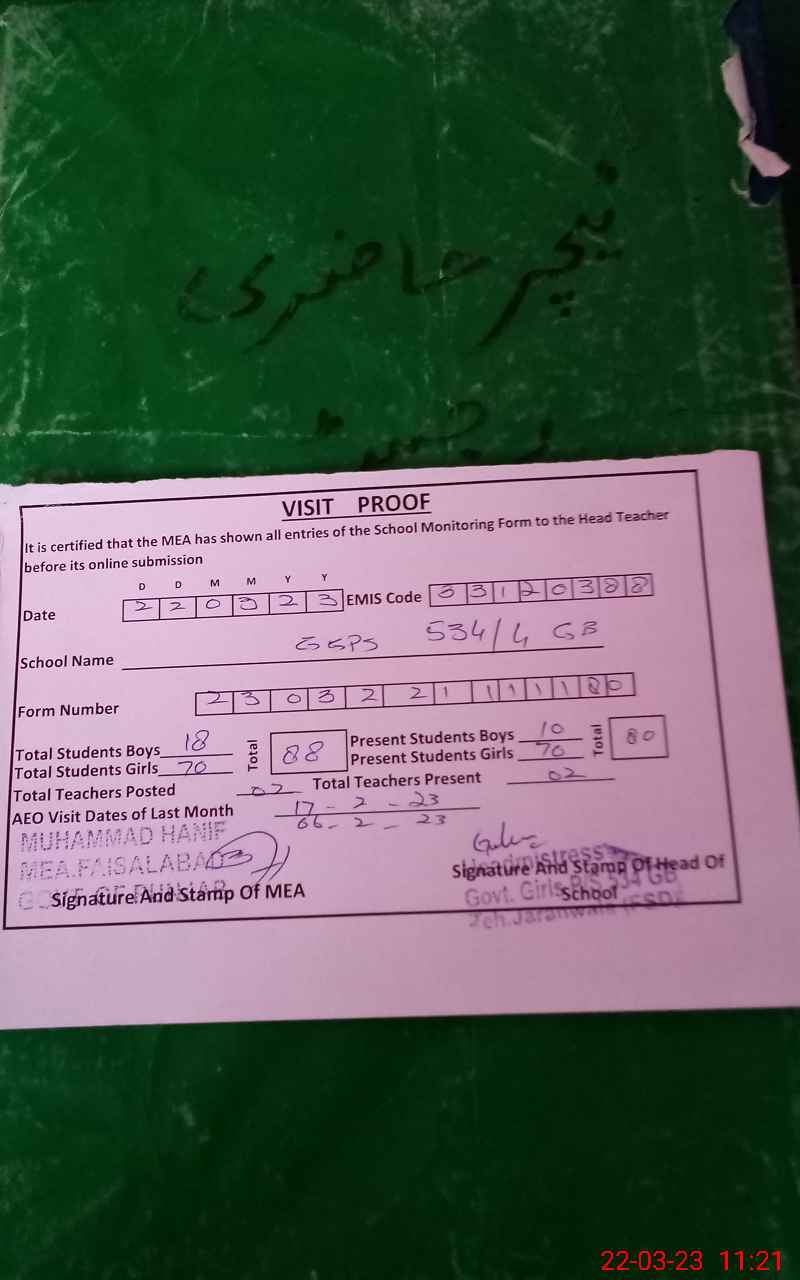 ٹیچر حاضری
رجسٹر
VISIT PROOF
It is certified that the MEA has shown all entries of the School Monitoring Form to the Head Teacher
before its online submission
D D M M Y Y
Date 2 2 0 3 2 3 EMIS Code 3 3 1 2 0 3 8 8
School Name GGPS 534/4 GB
Form Number 2 3 0 3 2 2 1 1 1 1 8 0
Total Students Boys 18 Total 88 Present Students Boys 10 Total 80
Total Students Girls 70 Present Students Girls 70
Total Teachers Posted 02 Total Teachers Present 02
AEO Visit Dates of Last Month 17-2-23
06-2-23
MUHAMMAD HANIF
MEA.FAISALABAD
GOVT. OF PUNJAB
Signature And Stamp Of MEA
Headmistress
Signature And Stamp Of Head Of
School
Govt. Girls P/S 534 GB
Teh.Jaranwala (FSD)
22-03-23 11:21